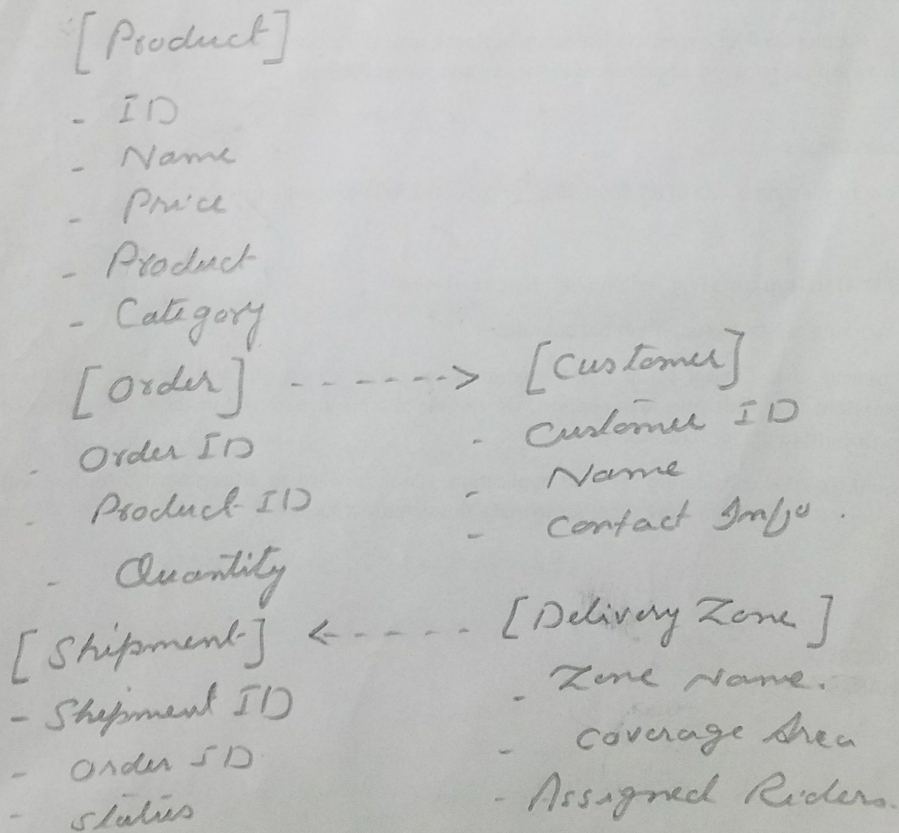 [Product]
- ID
- Name
- Price
- Product
- Category
[Order] ------> [Customer]
- Order ID
- Product ID
- Quantity
- Customer ID
- Name
- Contact Info.
[Shipment] <----- [Delivery Zone]
- Shipment ID
- Order ID
- Status
- Zone Name.
- Coverage Area
- Assigned Riders.